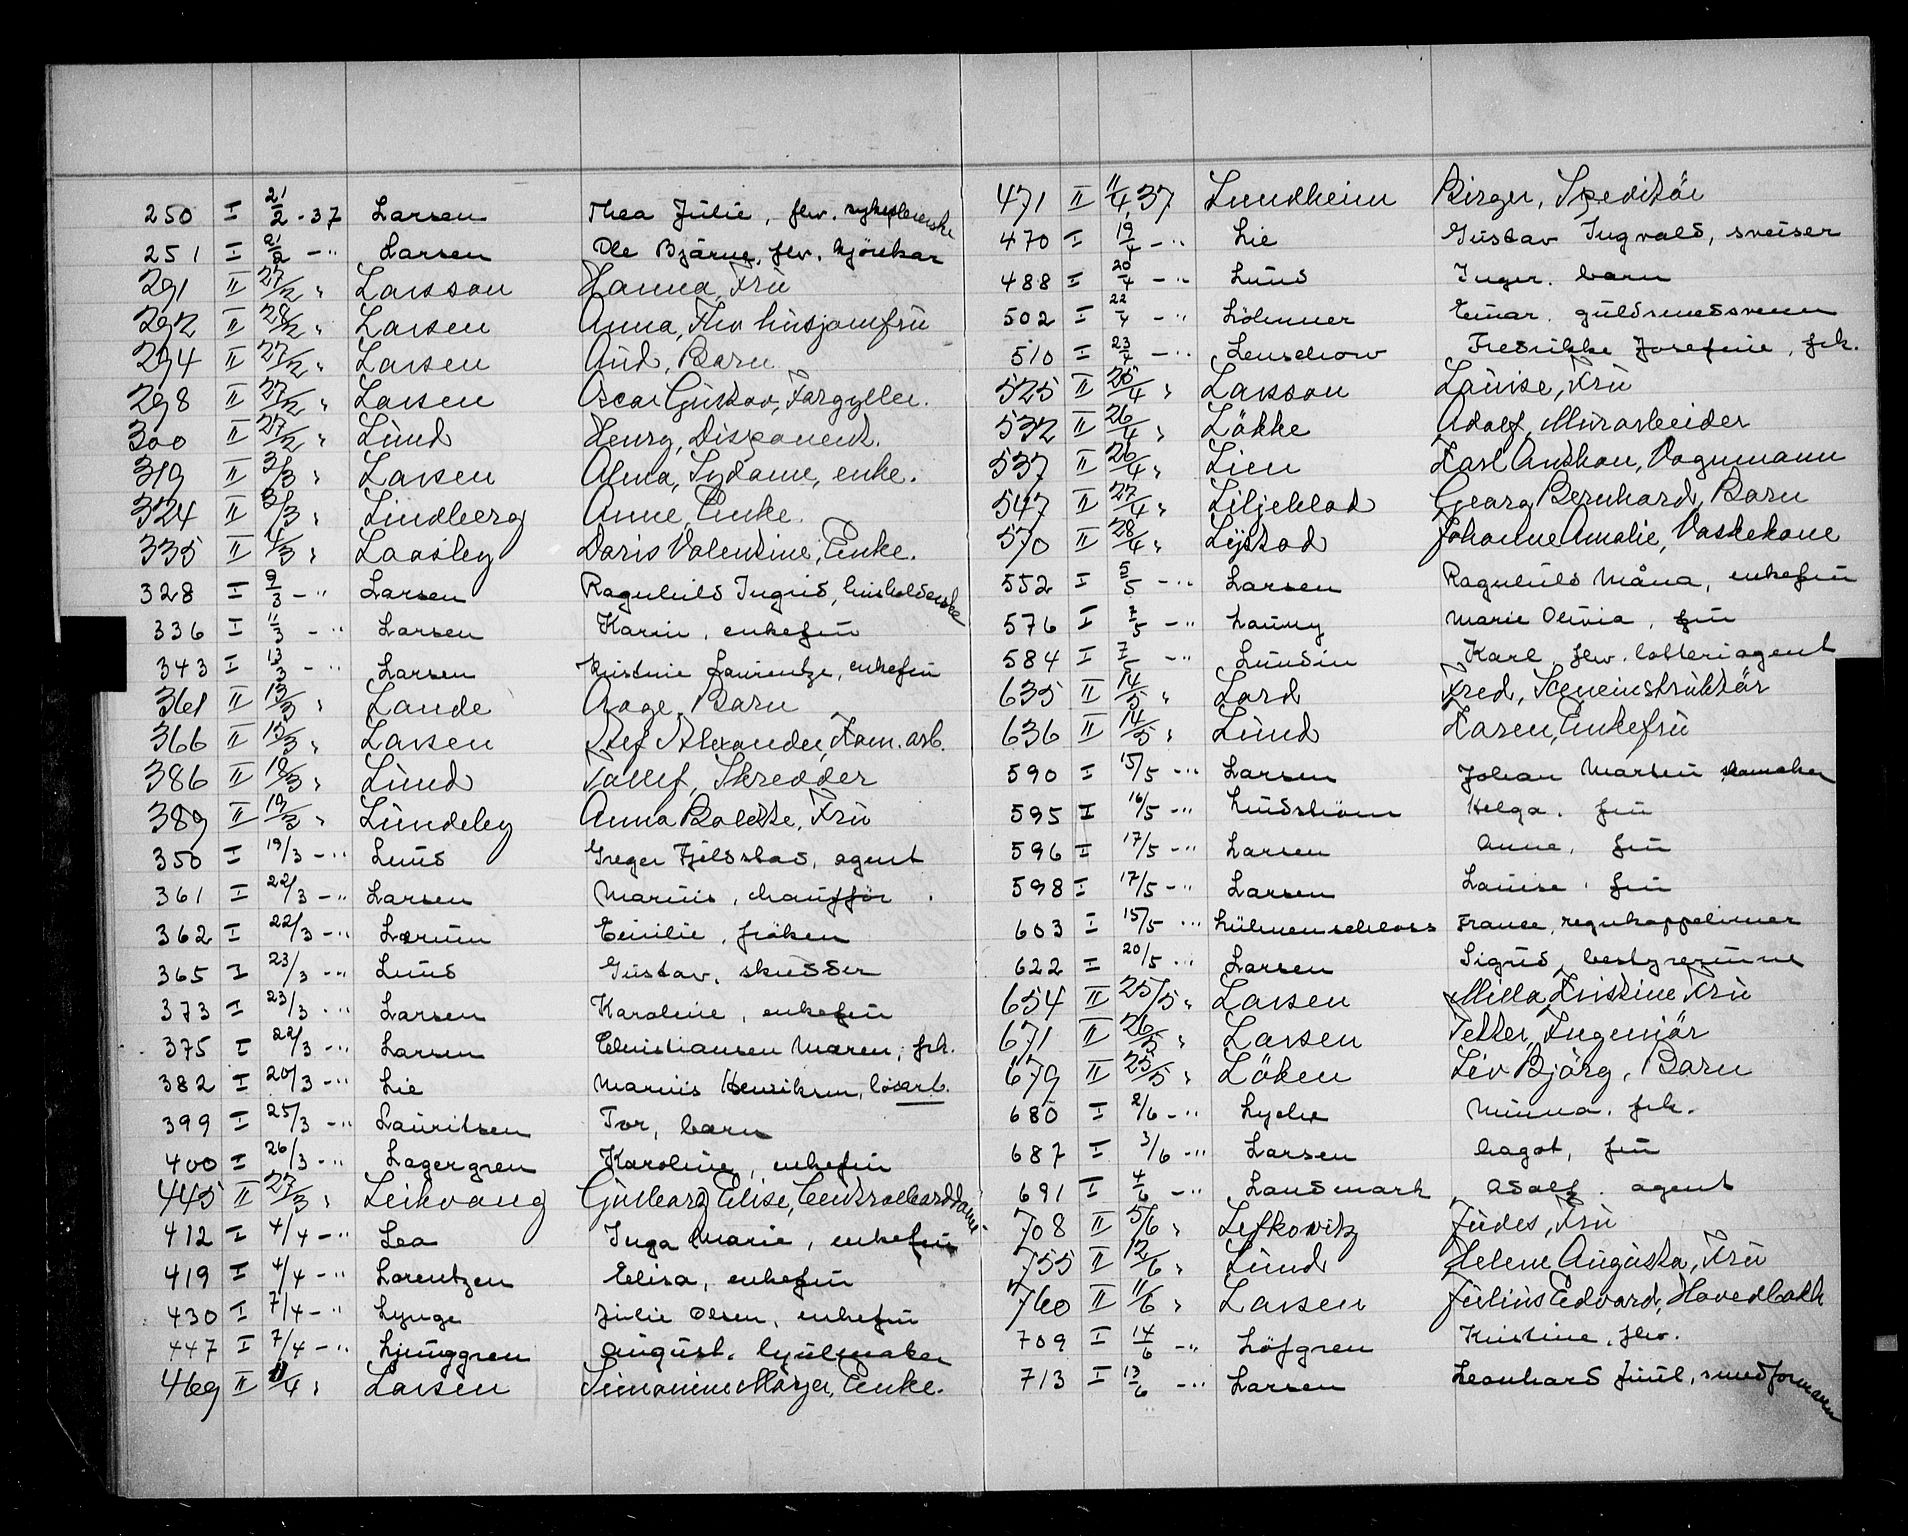 250 I 21/2 - 37 Larsen Thea Julie, fhv. sykepleierske
251 I 21/2 - " Larsen Ole Bjarne, fhv. kjörekar
291 II 27/2 " Larsson Hanna, Fru
292 II 28/2 " Larsen Anna, Fhv husjomfru
294 II 27/2 " Larsen Aud, Barn
298 II 27/2 " Larsen Oscar Gustav, Forgyller.
300 II 27/2 " Lund Henry, Disponent.
319 II 3/3 " Larsen Alma, Sydame, enke.
324 II 3/3 " Lindberg Anne, Enke.
335 II 4/3 " Laasby Doris Valentine, Enke.
328 I 9/3 - " Larsen Ragnhild Ingrid, husholderske
336 I 11/3 - " Larsen Karin, enkefru
343 I 13/3 - " Larsen Kristine Laurentze, enkefru
361 II 13/3 " Lande Aage, Barn
366 II 15/3 " Larsen Alexander, Kom. arb.
386 II 18/3 " Lund Skredder
389 II 19/3 " Lundeby Anna Bolette, Fru
350 I 19/3 - " Lund Greger Fjeldstad, agent
361 I 22/3 - " Larsen Marius, chauffør
362 I 22/3 - " Lærum Emilie, fröken
365 I 23/3 - " Lund Gustav, skredder
373 I 23/3 - " Larsen Karoline, enkefru
375 I 22/3 - " Larsen Christiansen Maren, frk.
382 I 20/3 - " Lie Marius Henriksen, lösarb.
399 I 25/3 - " Lauritsen Tor, barn
400 I 26/3 - " Lagergren Karoline, enkefru
445 II 27/3 " Leikvang Gunborg Elise, Centralborddame
412 I 4/4 - " Lea Inga Marie, enkefru
419 I 4/4 - " Lorentzen Elisa, enkefru
430 I 7/4 - " Lynge Julie Olsen, enkefru
447 I 7/4 - " Ljunggren August, hjulmaker
469 II /4 " Larsen Simonine Enke.
471 II 11/4 37 Lundheim Birger, Speditör
470 I 19/4 - " Lie Gustav Ingvald, sveiser
488 I 20/4 - " Lund Inger, barn
502 I 22/4 - " Einar, guldsmedsvenn
510 I 23/4 - " Lenschow Fredrikke Josefine, frk.
525 II 25/4 " Larsson Louise, Fru
532 II 26/4 " Lökke Adolf, Murarbeider
537 II 26/4 " Lien Karl Anthon, Vognmann
547 II 27/4 " Liljeblad Georg Bernhard, Barn
570 II 28/4 " Lystad Johanne Amalie, Vaskekone
552 I 5/5 - " Larsen Ragnhild Måna, enkefru
576 I 7/5 - " Launy Marie Olivia, fru
584 I 7/5 - " Lundin Karl, fhv. lotteriagent
635 II 14/5 " Lord Fred, Sceneinstruktör
636 II 14/5 " Lund Karen, Enkefru
590 I 15/5 - " Larsen Johan Martin skomaker
595 I 16/5 - " Lindström Helga, fru
596 I 17/5 - " Larsen Anne, fru
598 I 17/5 - " Larsen Louise, fru
603 I 15/5 - " Lühnenschloss Franc, regnkappelimer
622 I 20/5 - " Larsen Sigrid, bestyrerinne
654 II 25/5 " Larsen Milla Kristine Fru
671 II 26/5 " Larsen Petter, Ingeniör
679 II 25/5 " Löken Liv Björg, Barn
680 I 2/6 - " Lyche Minna, frk.
687 I 3/6 - " Larsen Dagot, fru
691 I 4/6 - " Landmark Adolf, agent
708 II 5/6 " Lefkowitz Judes, Fru
755 II 12/6 " Lund Helene Augusta, Fru
760 II 11/6 " Larsen Julius Edvard, Hovedbokh
709 I 14/6 - " Löfgren Kristine, fhv.
713 I 13/6 - " Larsen Leonhard Juul, smedformann